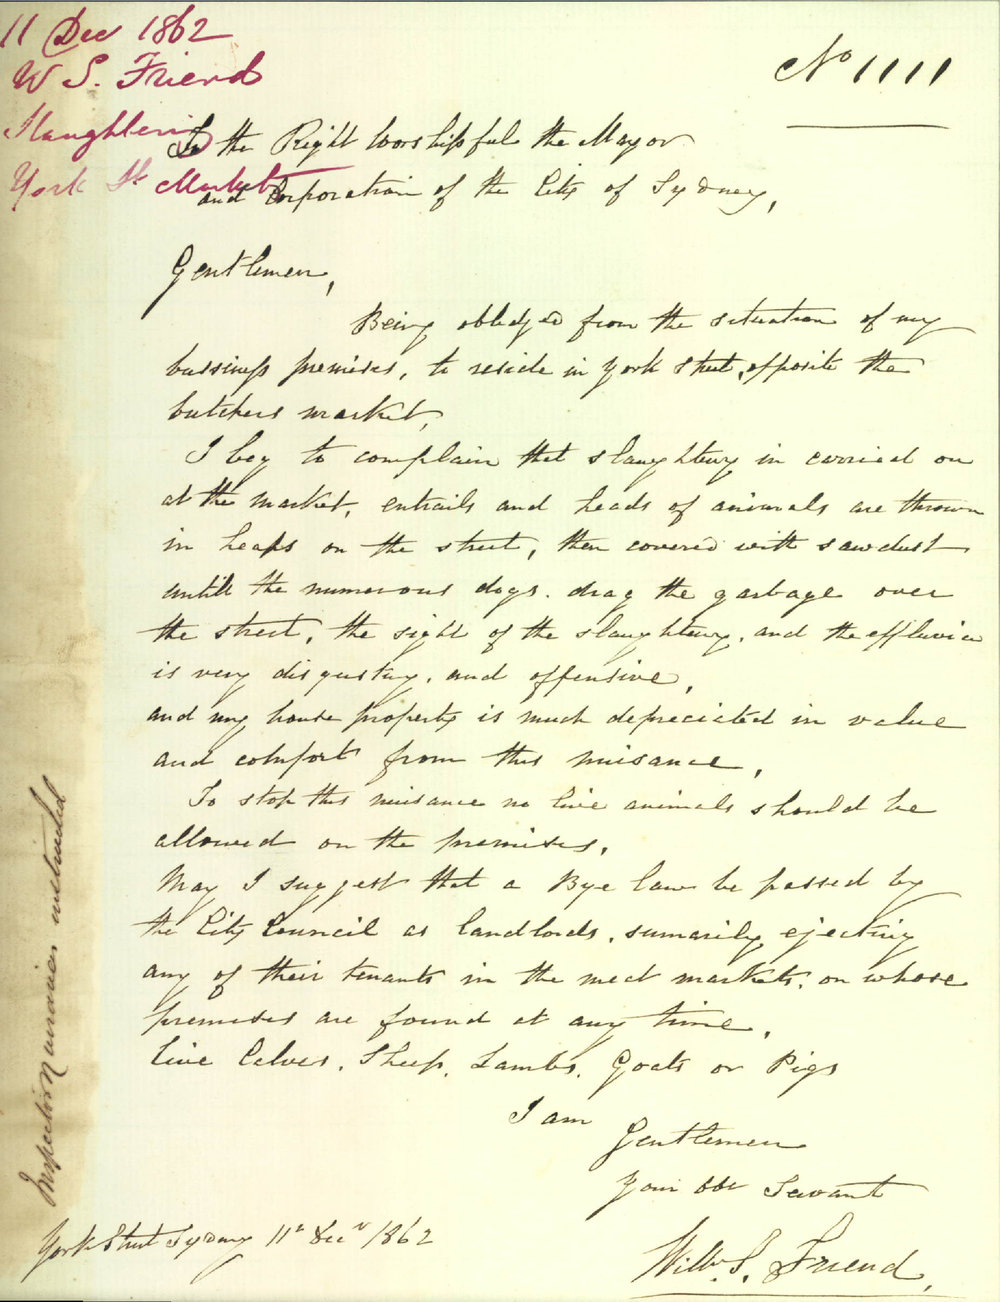 11 Dec 1862
W S. Friend
Slaughtering
York St Markets
No 1111
To the Right Worshipful the Mayor
and Corporation of the City of Sydney,
Gentlemen,
Being obledged from the situation of my
bussiness premises, to reside in York Street, opposite the
butchers market,
I beg to complain that slaughtering in carried on
at the market, entrails and heads of animals are thrown
in heaps on the street, then covered with sawdust
untill the numerous dogs. drag the garbage over
the street, the sight of the slaughtering, and the effluvia
is very disgusting, and offensive,
and my house property is much depreciated in value
and comfort from this nuisance,
To stop this nuisance no live animals should be
allowed on the premises,
May I suggest that a Bye law be passed by
the City Council as landlords, sumarily ejecting
any of their tenants in the meat markets, on whose
premises are found at any time,
live Calves, Sheep, Lambs, Goats or Pigs
I am
Gentlemen
Your obt Servant
Willm. S. Friend,
York Street Sydney 11th Decr 1862
Inspector of Nuisances instructed